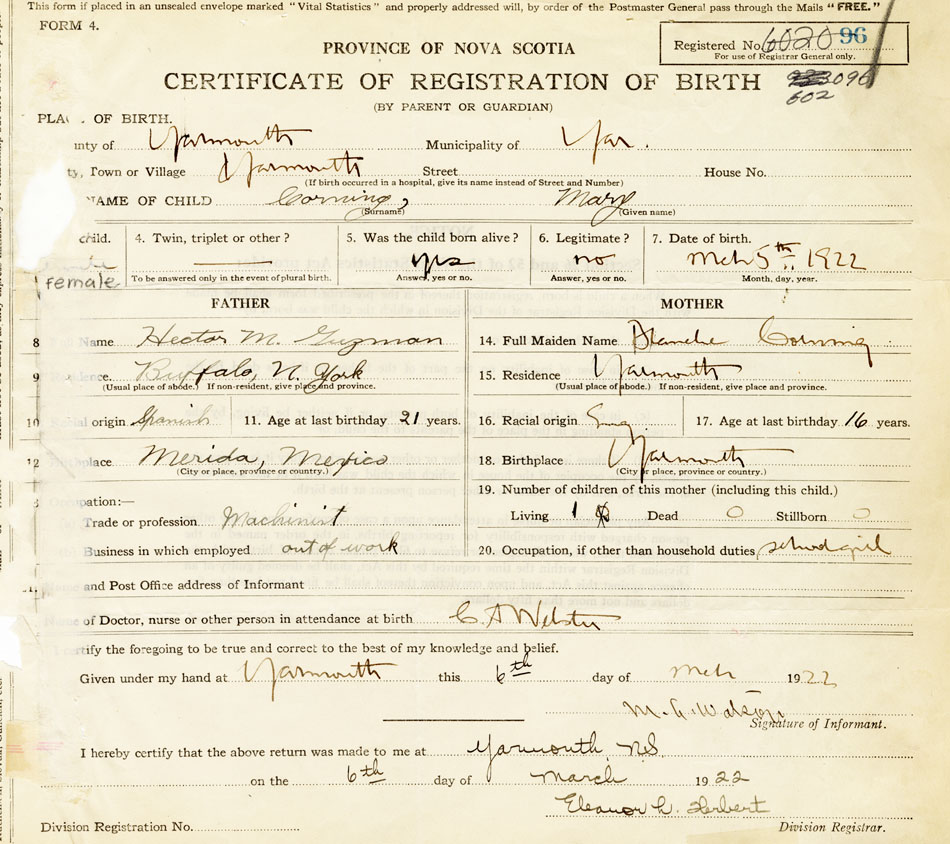 This form if placed in an unsealed envelope marked "Vital Statistics" and properly addressed will, by order of the Postmaster General pass through the Mails "FREE."
FORM 4.
Registered No. 6020 96
For use of Registrar General only.
PROVINCE OF NOVA SCOTIA
CERTIFICATE OF REGISTRATION OF BIRTH
096
602
(BY PARENT OR GUARDIAN)
PLA . OF BIRTH.
nty of Yarmouth Municipality of Yar.
ty, Town or Village Yarmouth Street House No.
(If birth occurred in a hospital, give its name instead of Street and Number)
NAME OF CHILD Corning, Mary
(Surname) (Given name)
child. 4. Twin, triplet or other? 5. Was the child born alive? 6. Legitimate? 7. Date of birth.
yes no Mch 5th 1922
female To be answered only in the event of plural birth. Answer, yes or no. Answer, yes or no. Month, day, year.
FATHER MOTHER
8 Name Hector M. Guzman 14. Full Maiden Name Blanche Corning
9 ce. Buffalo, N. York 15. Residence Yarmouth
(Usual place of abode.) If non-resident, give place and province. (Usual place of abode.) If non-resident, give place and province.
10 Racial origin Spanish 11. Age at last birthday 21 years. 16. Racial origin Eng. 17. Age at last birthday 16 years.
12 place Merida, Mexico 18. Birthplace Yarmouth
(City or place, province or country.) (City or place, province or country.)
19. Number of children of this mother (including this child.)
pation:—
Trade or profession Machinist Living 1 Dead 0 Stillborn 0
Business in which employed out of work 20. Occupation, if other than household duties, school girl
and Post Office address of Informant
of Doctor, nurse or other person in attendance at birth C. A Webster
certify the foregoing to be true and correct to the best of my knowledge and belief.
Given under my hand at Yarmouth this 6th day of Mch 1922
M. G. Watson
Signature of Informant.
I hereby certify that the above return was made to me at Yarmouth N.S
on the 6th day of March 1922
Eleanor L. Herbert
Division Registration No. Division Registrar.